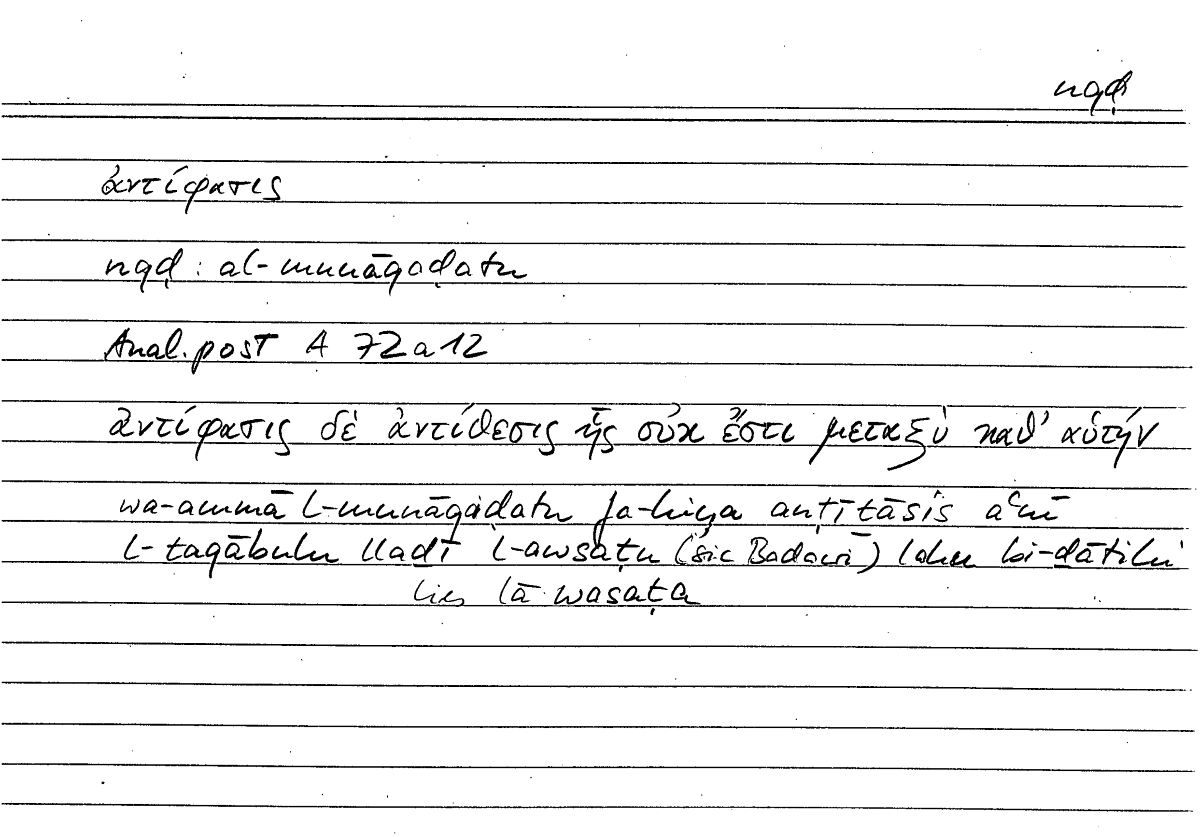 nqḍ
ἀντίφασις
nqḍ : al-munāqaḍatu
Anal. post A 72a12
ἀντίφασις δὲ ἀντίθεσις ἧς οὐκ ἔστι μεταξὺ καθ’ αὑτήν
wa-ammā l-munāqaḍatu fa-hiya anṭīṯāsis aʿnī
l-taqābulu lladī l-awsaṭu (sic Badawī) lahu bi-ḏātihī
lies lā wasaṭa